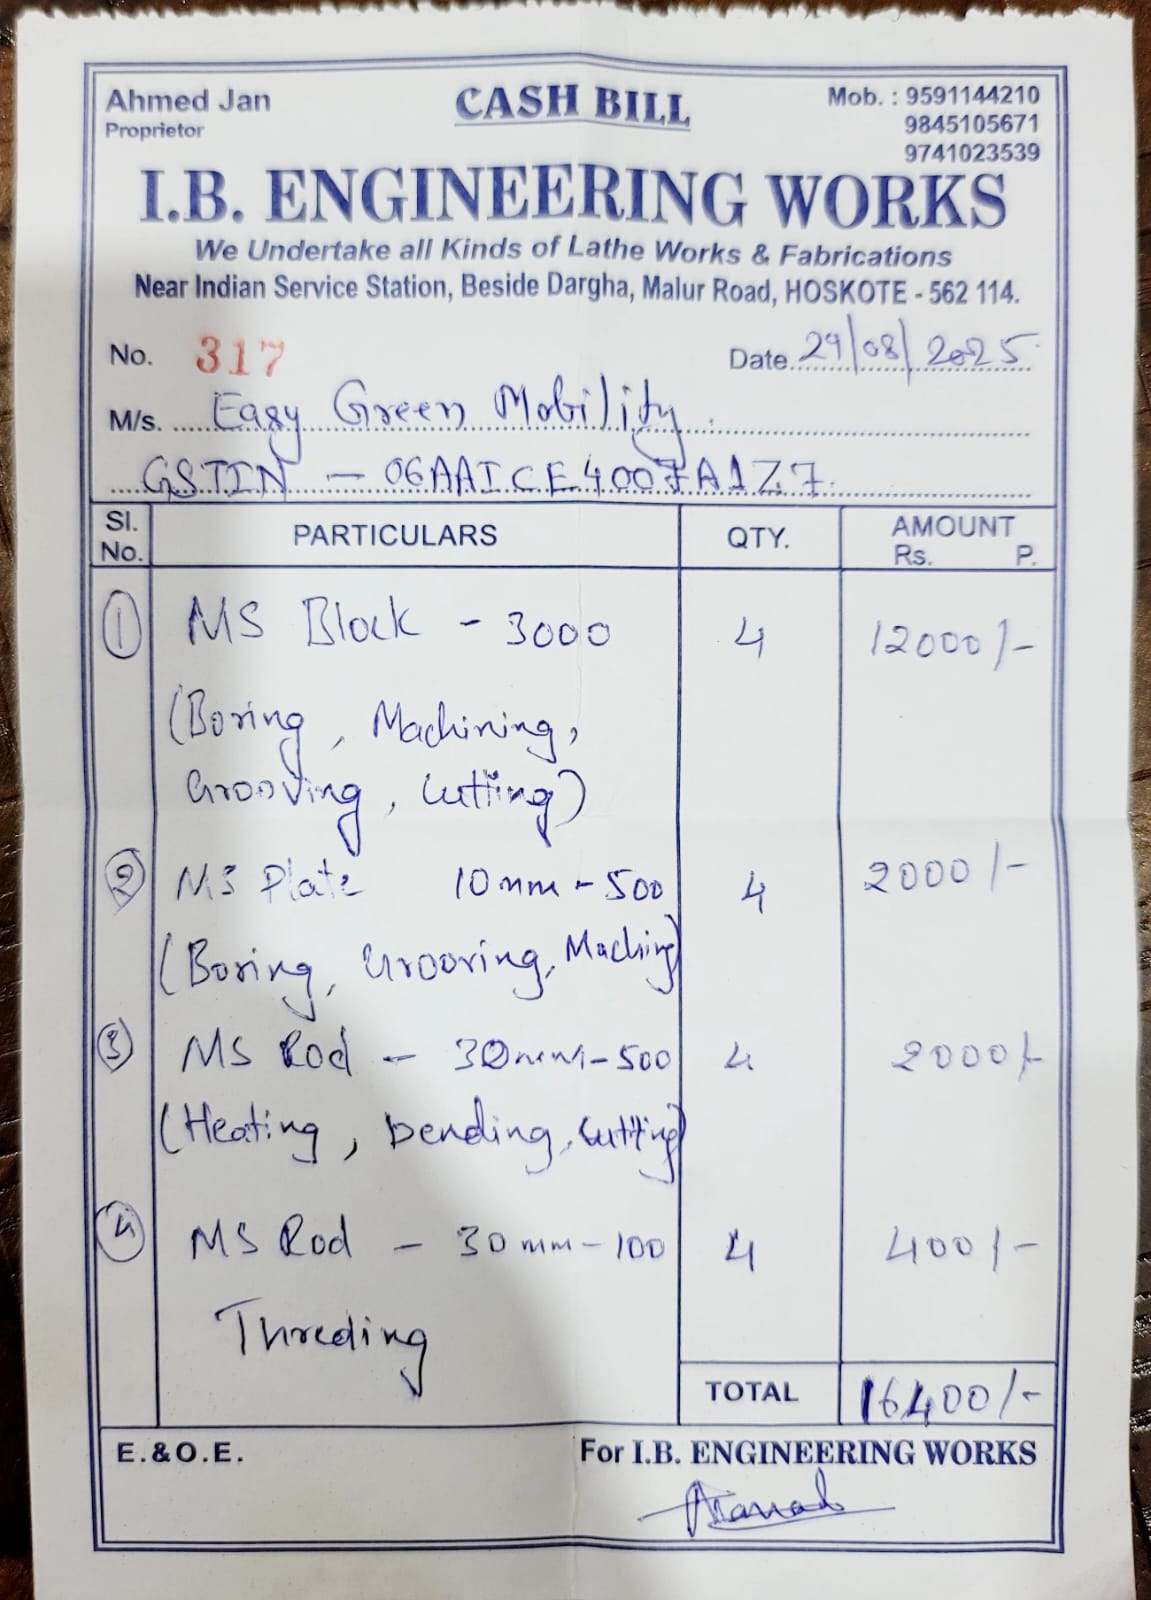 Ahmed Jan
Proprietor
CASH BILL
Mob. : 9591144210
9845105671
9741023539
I.B. ENGINEERING WORKS
We Undertake all Kinds of Lathe Works & Fabrications
Near Indian Service Station, Beside Dargha, Malur Road, HOSKOTE - 562 114.
No. 317 Date. 29/08/2025
M/s. Easy Green Mobility
GSTIN - 06AAICE4007A1Z7
Sl. No. PARTICULARS QTY. AMOUNT Rs. P.
1 MS Block - 3000 4 12000/-
(Boring, Machining,
Grooving, Cutting)
2 MS Plate 10mm - 500 4 2000/-
(Boring, Grooving, Maching)
3 MS Rod - 30mm - 500 4 2000/-
(Heating, bending, Cutting)
4 MS Rod - 30mm - 100 4 400/-
Threding
TOTAL 16400/-
E. & O.E. For I.B. ENGINEERING WORKS